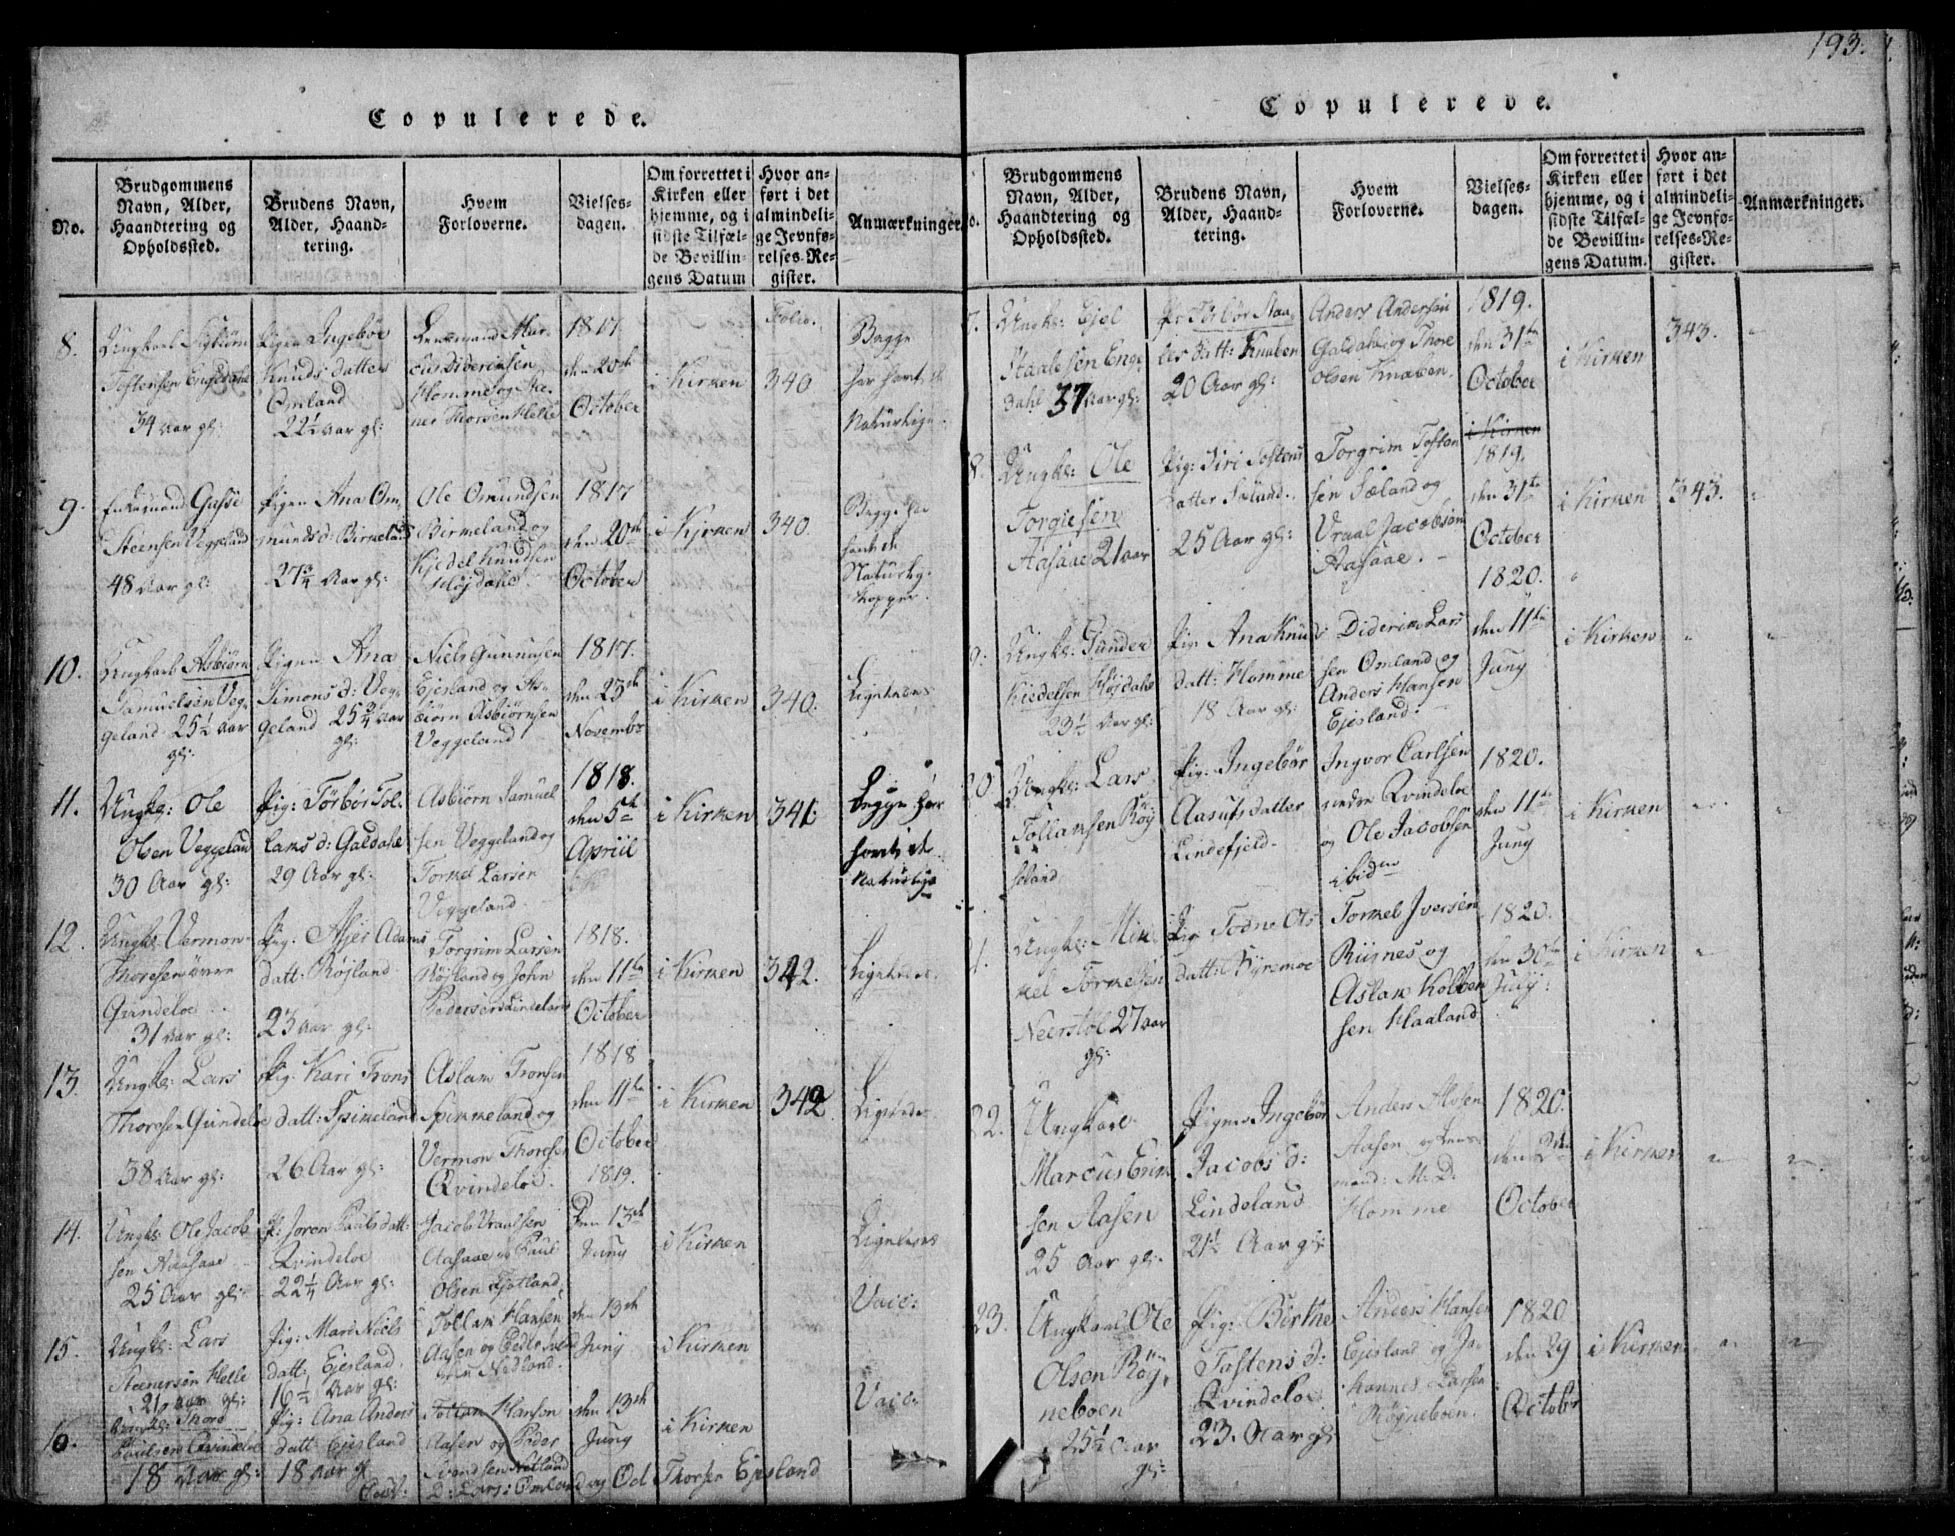 193.
Copulerede.
No.
Brudgommens
Navn, Alder,
Haandtering og
Opholdssted.
Brudens Navn,
Alder, Haand-
tering.
Hvem
Forloverne.
Vielses-
dagen.
Om forrettet i
Kirken eller
hjemme, og i
sidste Tilfæl-
de Bevillin-
gens Datum
Hvor an-
ført i det
almindeli-
ge Jevnfø-
relses-Re-
gister.
Anmærkninger.
8.
Ungkarl
Tostensen Engedahl
34 Aar gl:
Pigen Ingebør
Knuds datter
Omland
22½ Aar gl:
Lensmand Mar-
cus Diderichsen
Homme og
ner Thorsen Helle
1817.
den 20de
October
i Kirken
Folio.
340
Begge
har havt de
Naturlige
9.
Enkemand
Steensen Veggeland
48 Aar gl:
Pigen Ana Om-
munds d: Birkeland
27¾ Aar gl:
Ole Omundsen
Birkeland og
Kjedel Knudsen
Højdahl
1817
den 20de
October
i Kirken
340.
Begge
havt de
Naturlig
Kopper.
10.
Ungkarl Asbiørn
Samuelsen Veg-
geland 25½ Aar
gl:
Pigen Ana
Simons d: Veg-
geland 25¾ Aar
gl:
Niels Gunnufsen
Ejesland og As-
biørn Asbiørnsen
Veggeland
1817.
den 23de
Novembr
i Kirken
340.
Ligeledes
11.
Ungk: Ole
Olsen Veggeland
30 Aar gl:
Pig: Torbør Tol-
laks d: Galdahl
29 Aar gl:
Asbiørn Samuel
sen Veggeland og
Torkel Larsen
Veggeland
1818.
den 5te
Apriil
i Kirken
341.
Begge har
havt de
Naturlige
12.
Ungk: Vermon
Thoresen øvre
Qvindeloe
31 Aar gl:
Pig: Adams
datt: Røjland
23 Aar gl.
Torgrim Larsen
Røjland og John
Pedersen Lindeland
1818.
den 11te
October
i Kirken
342.
Ligeledes.
13.
Ungk: Lars
Thoresen Qvindeloe
38 Aar gl:
Pig: Kari Trons
datt: Spikeland
26 Aar gl:
Aslak Tronsen
Spikkeland og
Vermon Thoresen
Qvindeloe.
1818
den 11te
October
i Kirken
342
Ligeledes.
14.
Ungk: Ole Jacob
sen Aasaae
25 Aar gl:
P: Joren Pauls datt:
Qvindeloe
22¼ Aar gl:
Jacob Vraalsen
Aasaae og Paul
Olsen Fjotland.
1819.
Den 13de
Juny
i Kirken
Ligeledes
15.
Ungk: Lars
Steenersen Helle
21 Aar gl:
Pig: Mari Niels
datt: Ejesland.
16½ Aar gl:
Tollak Hansen
Aasen og Peder
Nedland.
den 13de
Juny
i Kirken
Vacc:
16.
Ungk: Thore
Paulsen Qvindeloe
18 Aar gl:
Pig: Ana Anders
datt: Ejesland
18 Aar gl
Tollak Hansen
Aasen og Peder
Svendsen Netland
D: Lars: Omland og Od Thorsen Ejesland
den 13de
Juny
i Kirken
Vacc.
Copulerede.
o.
Brudgommens
Navn, Alder,
Haandtering og
Opholdssted.
Brudens Navn,
Alder, Haand-
tering.
Hvem
Forloverne.
Vielses-
dagen.
Om forrettet i
Kirken eller
hjemme, og i
sidste Tilfæl-
de Bevillin-
gens Datum.
Hvor an-
ført i det
almindeli-
ge Jevnfø-
relses-Re-
gister.
Anmærkninger.
7.
Ungk: Ejel
Staalesen Enge
dahl 37 Aar gl:
P: Torbør Staa-
les datt: Knaben
20 Aar gl:
Anders Andersen
Galdahl og Thore
Olsen Knaben.
1819.
den 31te
October
i Kirken
343.
8.
Ungk: Ole
Torgiesen
Aasaae 21 aar
Pig: Siri Tostens
datter Sæland.
25 Aar gl:
Torgrim Tosten
sen Sæland og
Vraal Jacobsen
Aasaae.
i Kirken
1819.
den 31te
October
i Kirken
343.
9.
Ungk: Gunder
Kiedelsen Højdahl
23½ Aar gl:
Pig: Ana Knuds
datt: Homme
18 Aar gl:
Diderik Lars
sen Omland og
Anders Hansen
Ejesland.
1820.
den 11te
Juny
i Kirken
20.
Ungk: Lars
Tollaksen Røj
seland
Pig: Ingebør
Aasufs datter
Lindefjeld.
Ingvor Carlsen
nedre Qvindeloe
og Ole Jacobsen
ibidm
1820.
den 11te
Juny
i Kirken
1.
Ungk: Mik-
kel Torkelsen
Neerstøl 27 Aar
gl:
Pig Todne
datt: Kyremoe
Torkel Iversen
Riisnes og
Aslak Kolben
sen Haaland
1820.
den 30te
July:
i Kirken
22.
Ungkarl
Marcus Erik
sen Aasen
25 Aar gl.
Pigen Ingebør
Jacobs d:
Lindeland
21½ Aar gl:
Anders
Aasen og Lens-
mand: M: D:
Homme
1820.
den 2den
October
i Kirken
23.
Ungkarl Ole
Olsen Røj-
neboen
25½ Aar
gl:
Pig: Berthe
Tostens d:
Qvindeloe
23. Aar gl
Anders Hansen
Ejesland og Jo-
hannes Larsen
Røjneboen.
1820
den 29
October
i Kirken